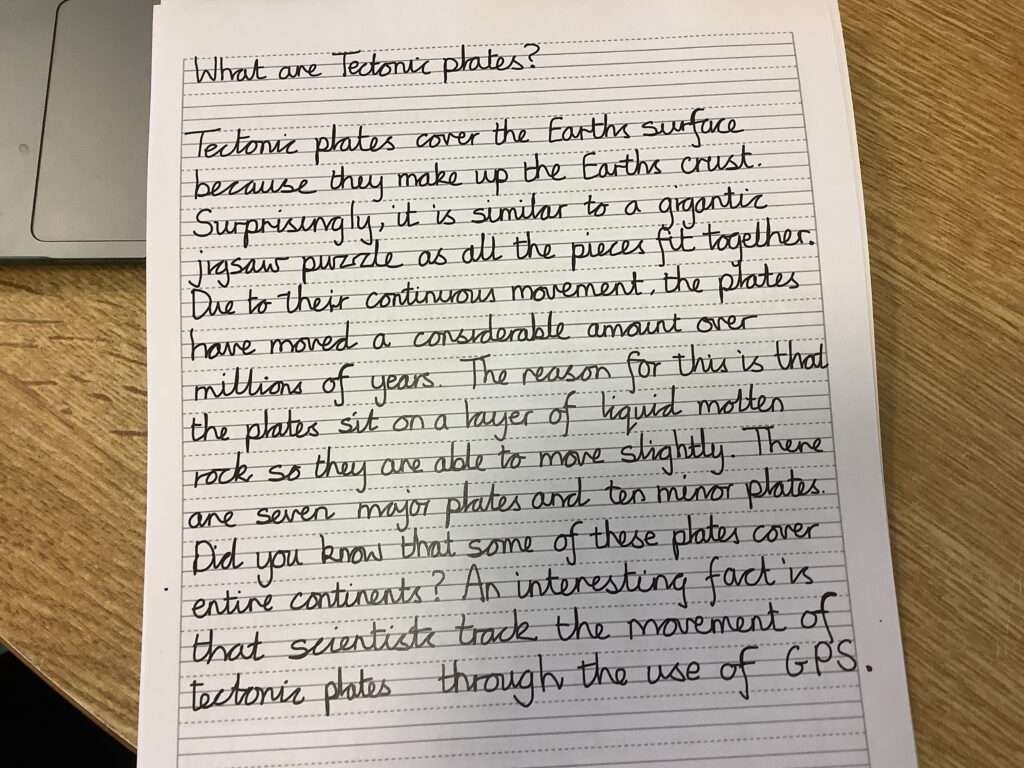 What are Tectonic plates?
Tectonic plates cover the Earths surface
because they make up the Earths crust.
Surprisingly, it is similar to a gigantic
jigsaw puzzle as all the pieces fit together.
Due to their continuous movement, the plates
have moved a considerable amount over
millions of years. The reason for this is that
the plates sit on a layer of liquid molten
rock so they are able to move slightly. There
are seven major plates and ten minor plates.
Did you know that some of these plates cover
entire continents? An interesting fact is
that scientists track the movement of
tectonic plates through the use of GPS.